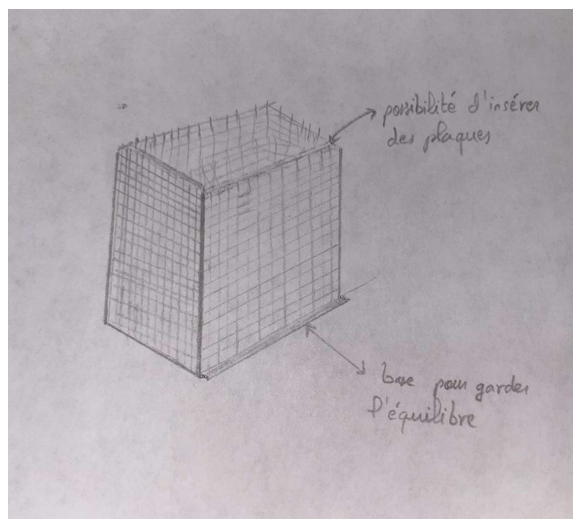 possibilité d'insérer
des plaques
base pour garder
l'équilibre